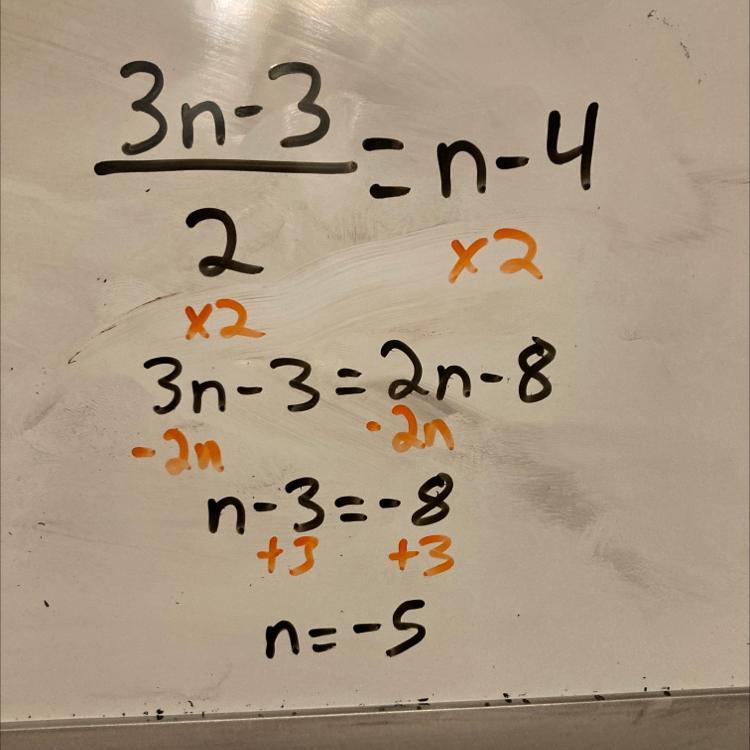 3n-3
= n-4
2
×2 ×2
3n-3=2n-8
-2n -2n
n-3=-8
+3 +3
n=-5